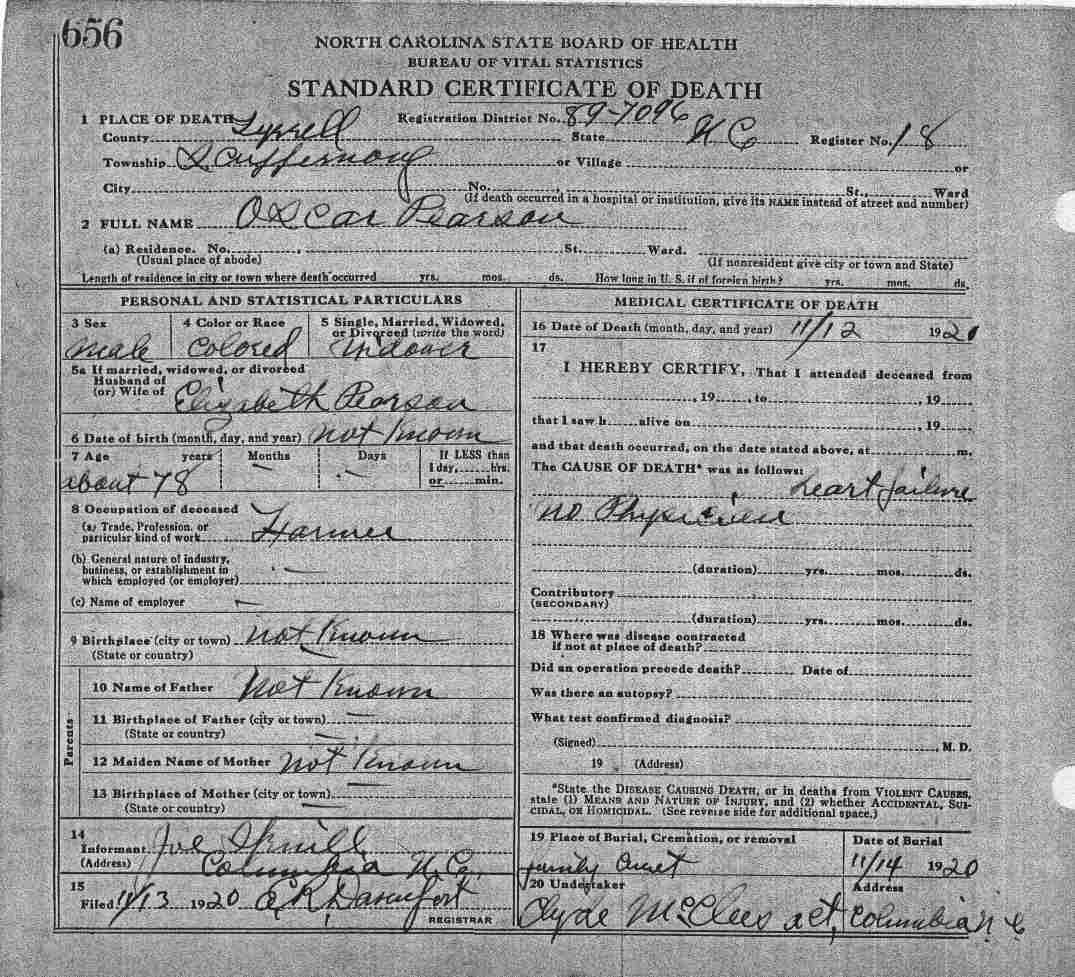 656
NORTH CAROLINA STATE BOARD OF HEALTH
BUREAU OF VITAL STATISTICS
STANDARD CERTIFICATE OF DEATH
1 PLACE OF DEATH Registration District No. 89-7096
County Tyrrell State N C Register No. 18
Township Scuppernong or Village or
City No. St., Ward
(If death occurred in a hospital or institution, give its NAME instead of street and number)
2 FULL NAME Oscar Pearson
(a) Residence. No. , St. Ward.
(Usual place of abode) (If nonresident give city or town and State)
Length of residence in city or town where death occurred yrs. mos. ds. How long in U. S. if of foreign birth? yrs. mos. ds.
PERSONAL AND STATISTICAL PARTICULARS
3 Sex 4 Color or Race 5 Single, Married, Widowed, or Divorced (write the word)
Male Colored Widower
5a If married, widowed, or divorced
Husband of
(or) Wife of Elizabeth Pearson
6 Date of birth (month, day, and year) not Known
7 Age years Months Days If LESS than 1 day, hrs. or min.
about 78 — —
8 Occupation of deceased
(a) Trade, Profession, or particular kind of work Farmer
(b) General nature of industry, business, or establishment in which employed (or employer) —
(c) Name of employer —
9 Birthplace (city or town) not Known
(State or country) —
Parents
10 Name of Father Not Known
11 Birthplace of Father (city or town) —
(State or country) —
12 Maiden Name of Mother Not Known
13 Birthplace of Mother (city or town) —
(State or country) —
14
Informant Joe Spruill
(Address) Columbia N.C.
15
Filed 11/13 1920 Davenport
REGISTRAR
MEDICAL CERTIFICATE OF DEATH
16 Date of Death (month, day, and year) 11/12 1920
17
I HEREBY CERTIFY, That I attended deceased from
, 19 , to , 19
that I saw h alive on , 19
and that death occurred, on the date stated above, at m.
The CAUSE OF DEATH* was as follows:
heart failure
no Physician
(duration) yrs. mos. ds.
Contributory
(SECONDARY)
(duration) yrs. mos. ds.
18 Where was disease contracted
If not at place of death?
Did an operation precede death? Date of
Was there an autopsy?
What test confirmed diagnosis?
(Signed) , M. D.
19 (Address)
*State the DISEASE CAUSING DEATH, or in deaths from VIOLENT CAUSES,
state (1) MEANS AND NATURE OF INJURY, and (2) whether ACCIDENTAL, SUI-
CIDAL, OR HOMICIDAL. (See reverse side for additional space.)
19 Place of Burial, Cremation, or removal Date of Burial
family 11/14 1920
20 Undertaker Address
Clyde McClees act, Columbia N C